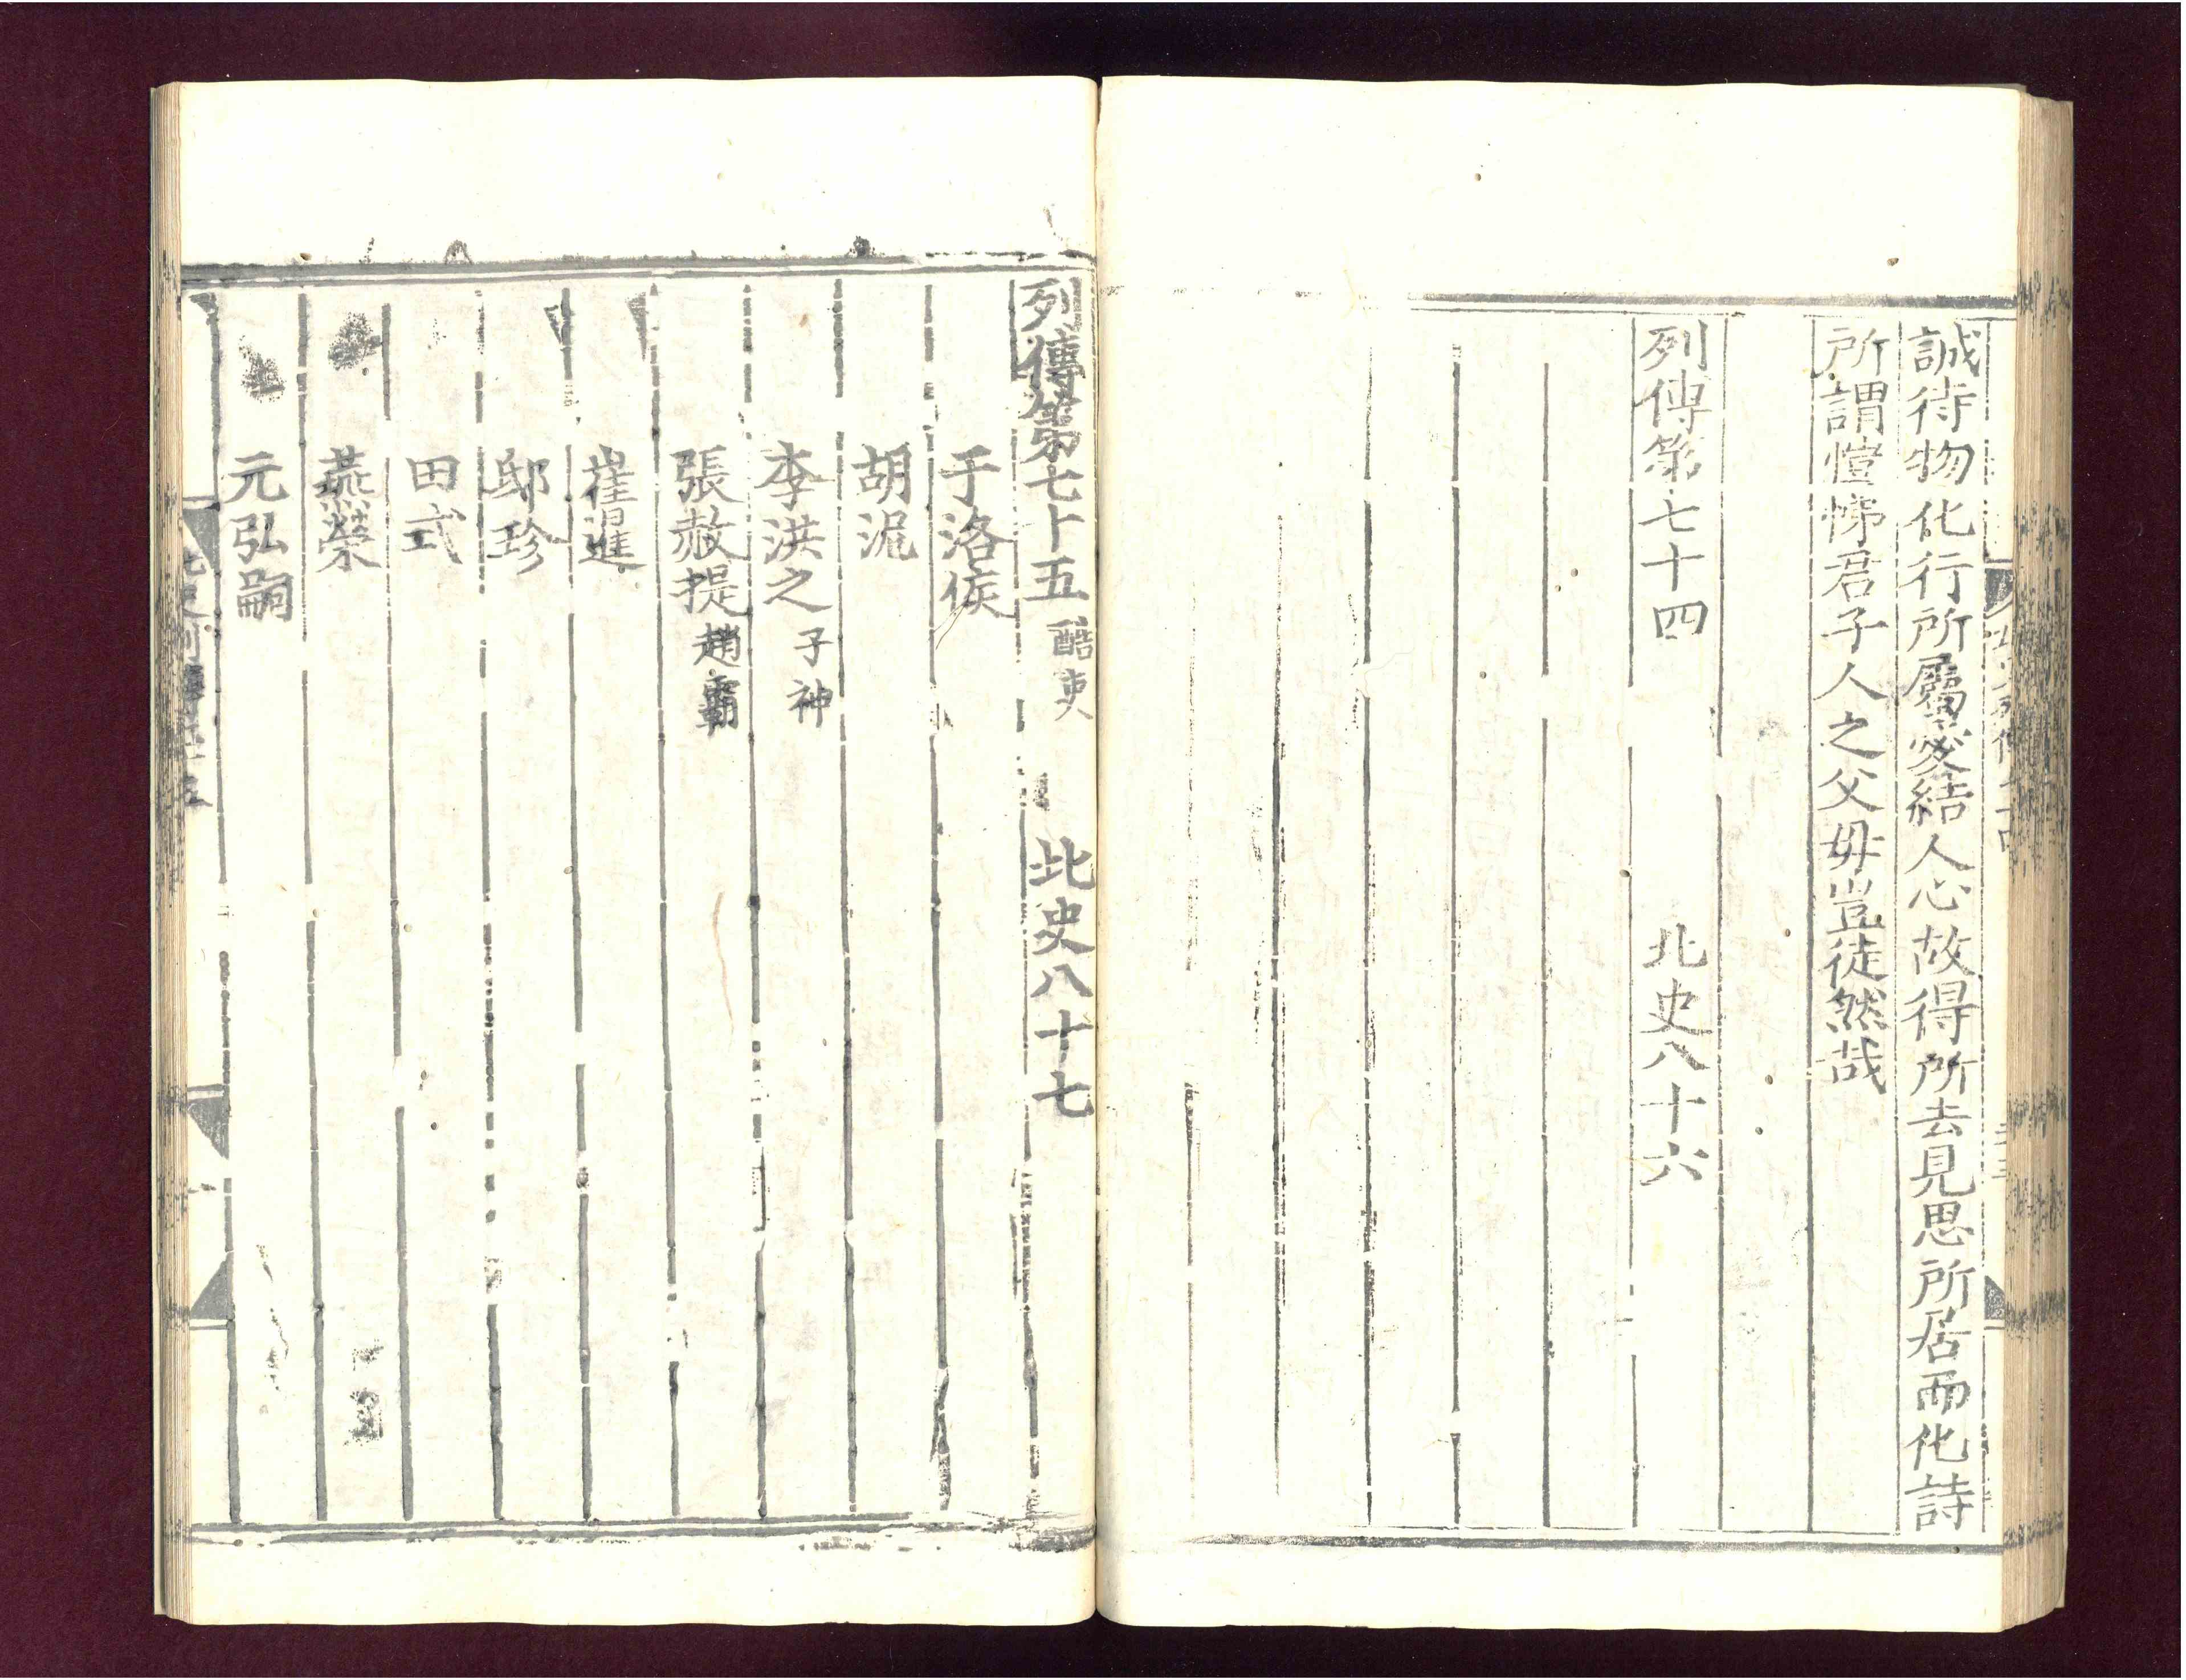 誠待物化行所屬愛結人心故得所去見思所居而化詩
所謂愷悌君子人之父母豈徒然哉
列傳第七十四 北史八十六
列傳第七十五 酷吏 北史八十七
于洛侯
胡泥
李洪之 子神
張赦提 趙霸
崔暹
邸珍
田式
燕榮
元弘嗣